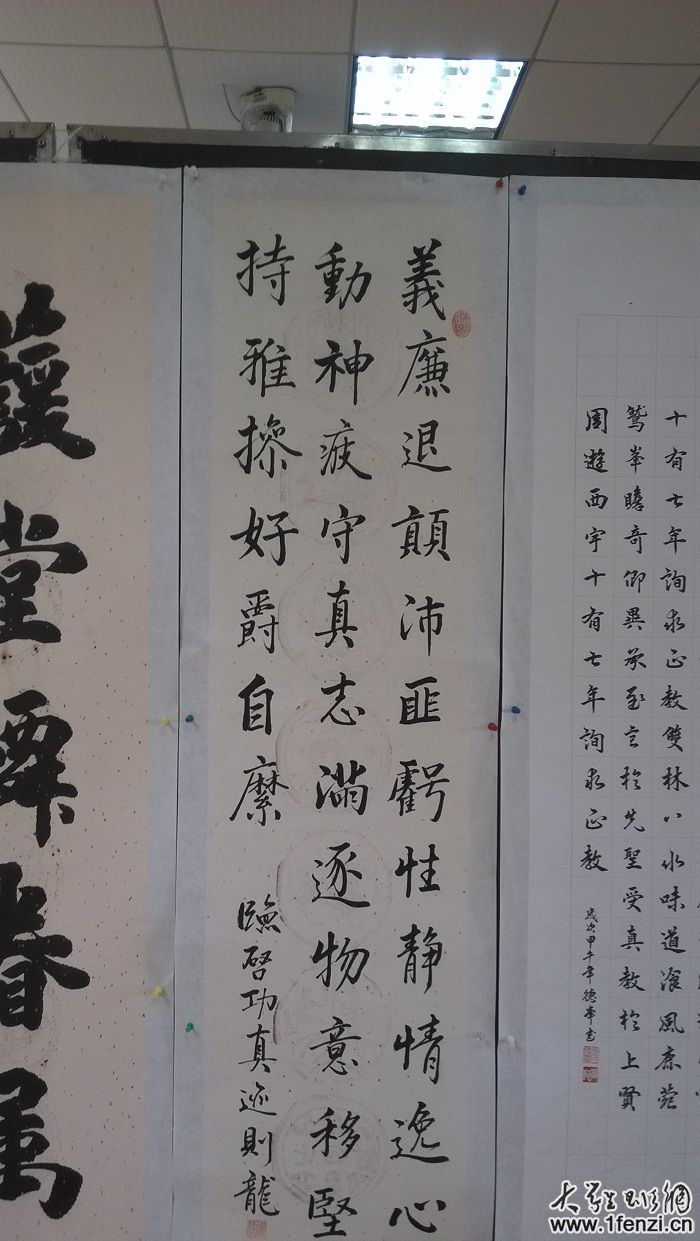 十有七年詢求正教雙林八水味道飡風鹿菀
鷲峯瞻奇仰異承至言於先聖受真教於上賢
周遊西宇十有七年詢求正教
歲次甲午韋德
義廉退顛沛匪虧性靜情逸心
動神疲守真志滿逐物意移堅
持雅操好爵自縻
臨啓功真迹則龍
護堂
眷属
www.1fenzi.cn